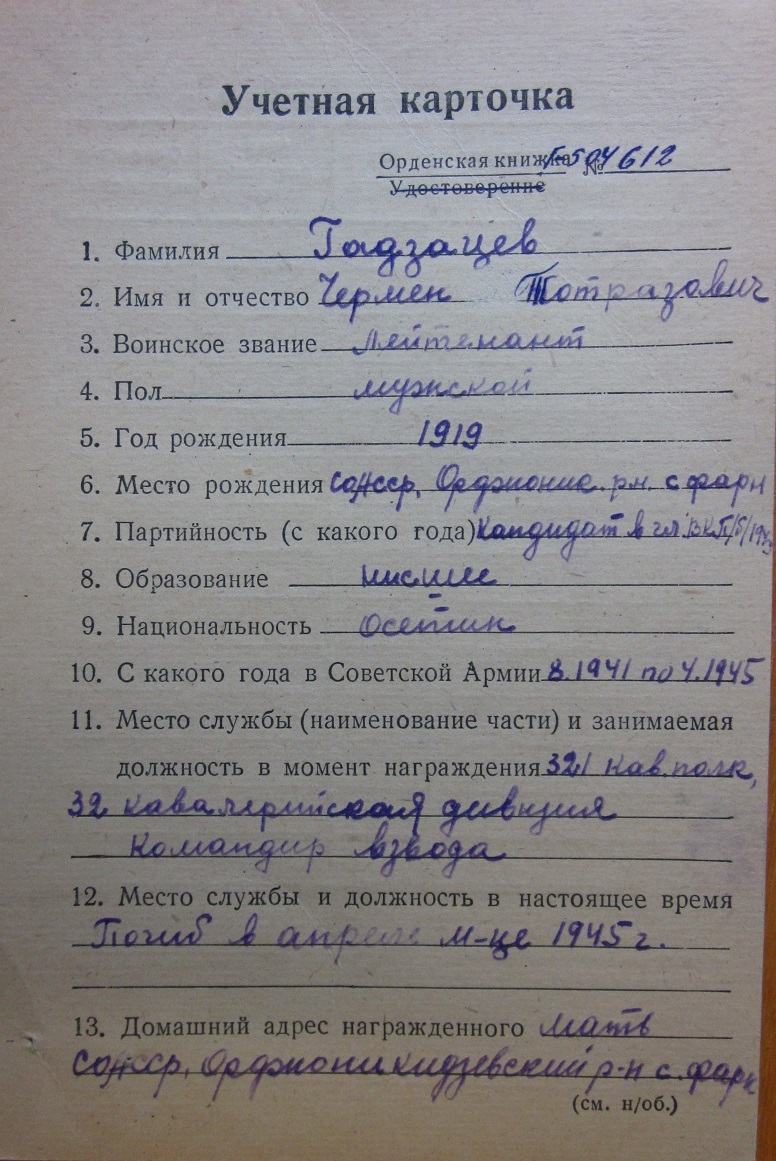 Учетная карточка
Орденская книжка № Г-504612
Удостоверение
1. Фамилия Гадзацев
2. Имя и отчество Чермен Тотразович
3. Воинское звание лейтенант
4. Пол мужской
5. Год рождения 1919
6. Место рождения СОАССР, Орджоник. р-н. с фарн
7. Партийность (с какого года) кандидат в чл. ВКП/б/
8. Образование низшее
9. Национальность Осетин
10. С какого года в Советской Армии 8.1941 по 4.1945
11. Место службы (наименование части) и занимаемая
должность в момент награждения 321 кав. полк,
32 кавалерийская дивизия
командир взвода
12. Место службы и должность в настоящее время
Погиб в апреле м-це 1945 г.
13. Домашний адрес награжденного мать
СОАССР, Орджоникидзевский р-н с. фарн
(см. н/об.)